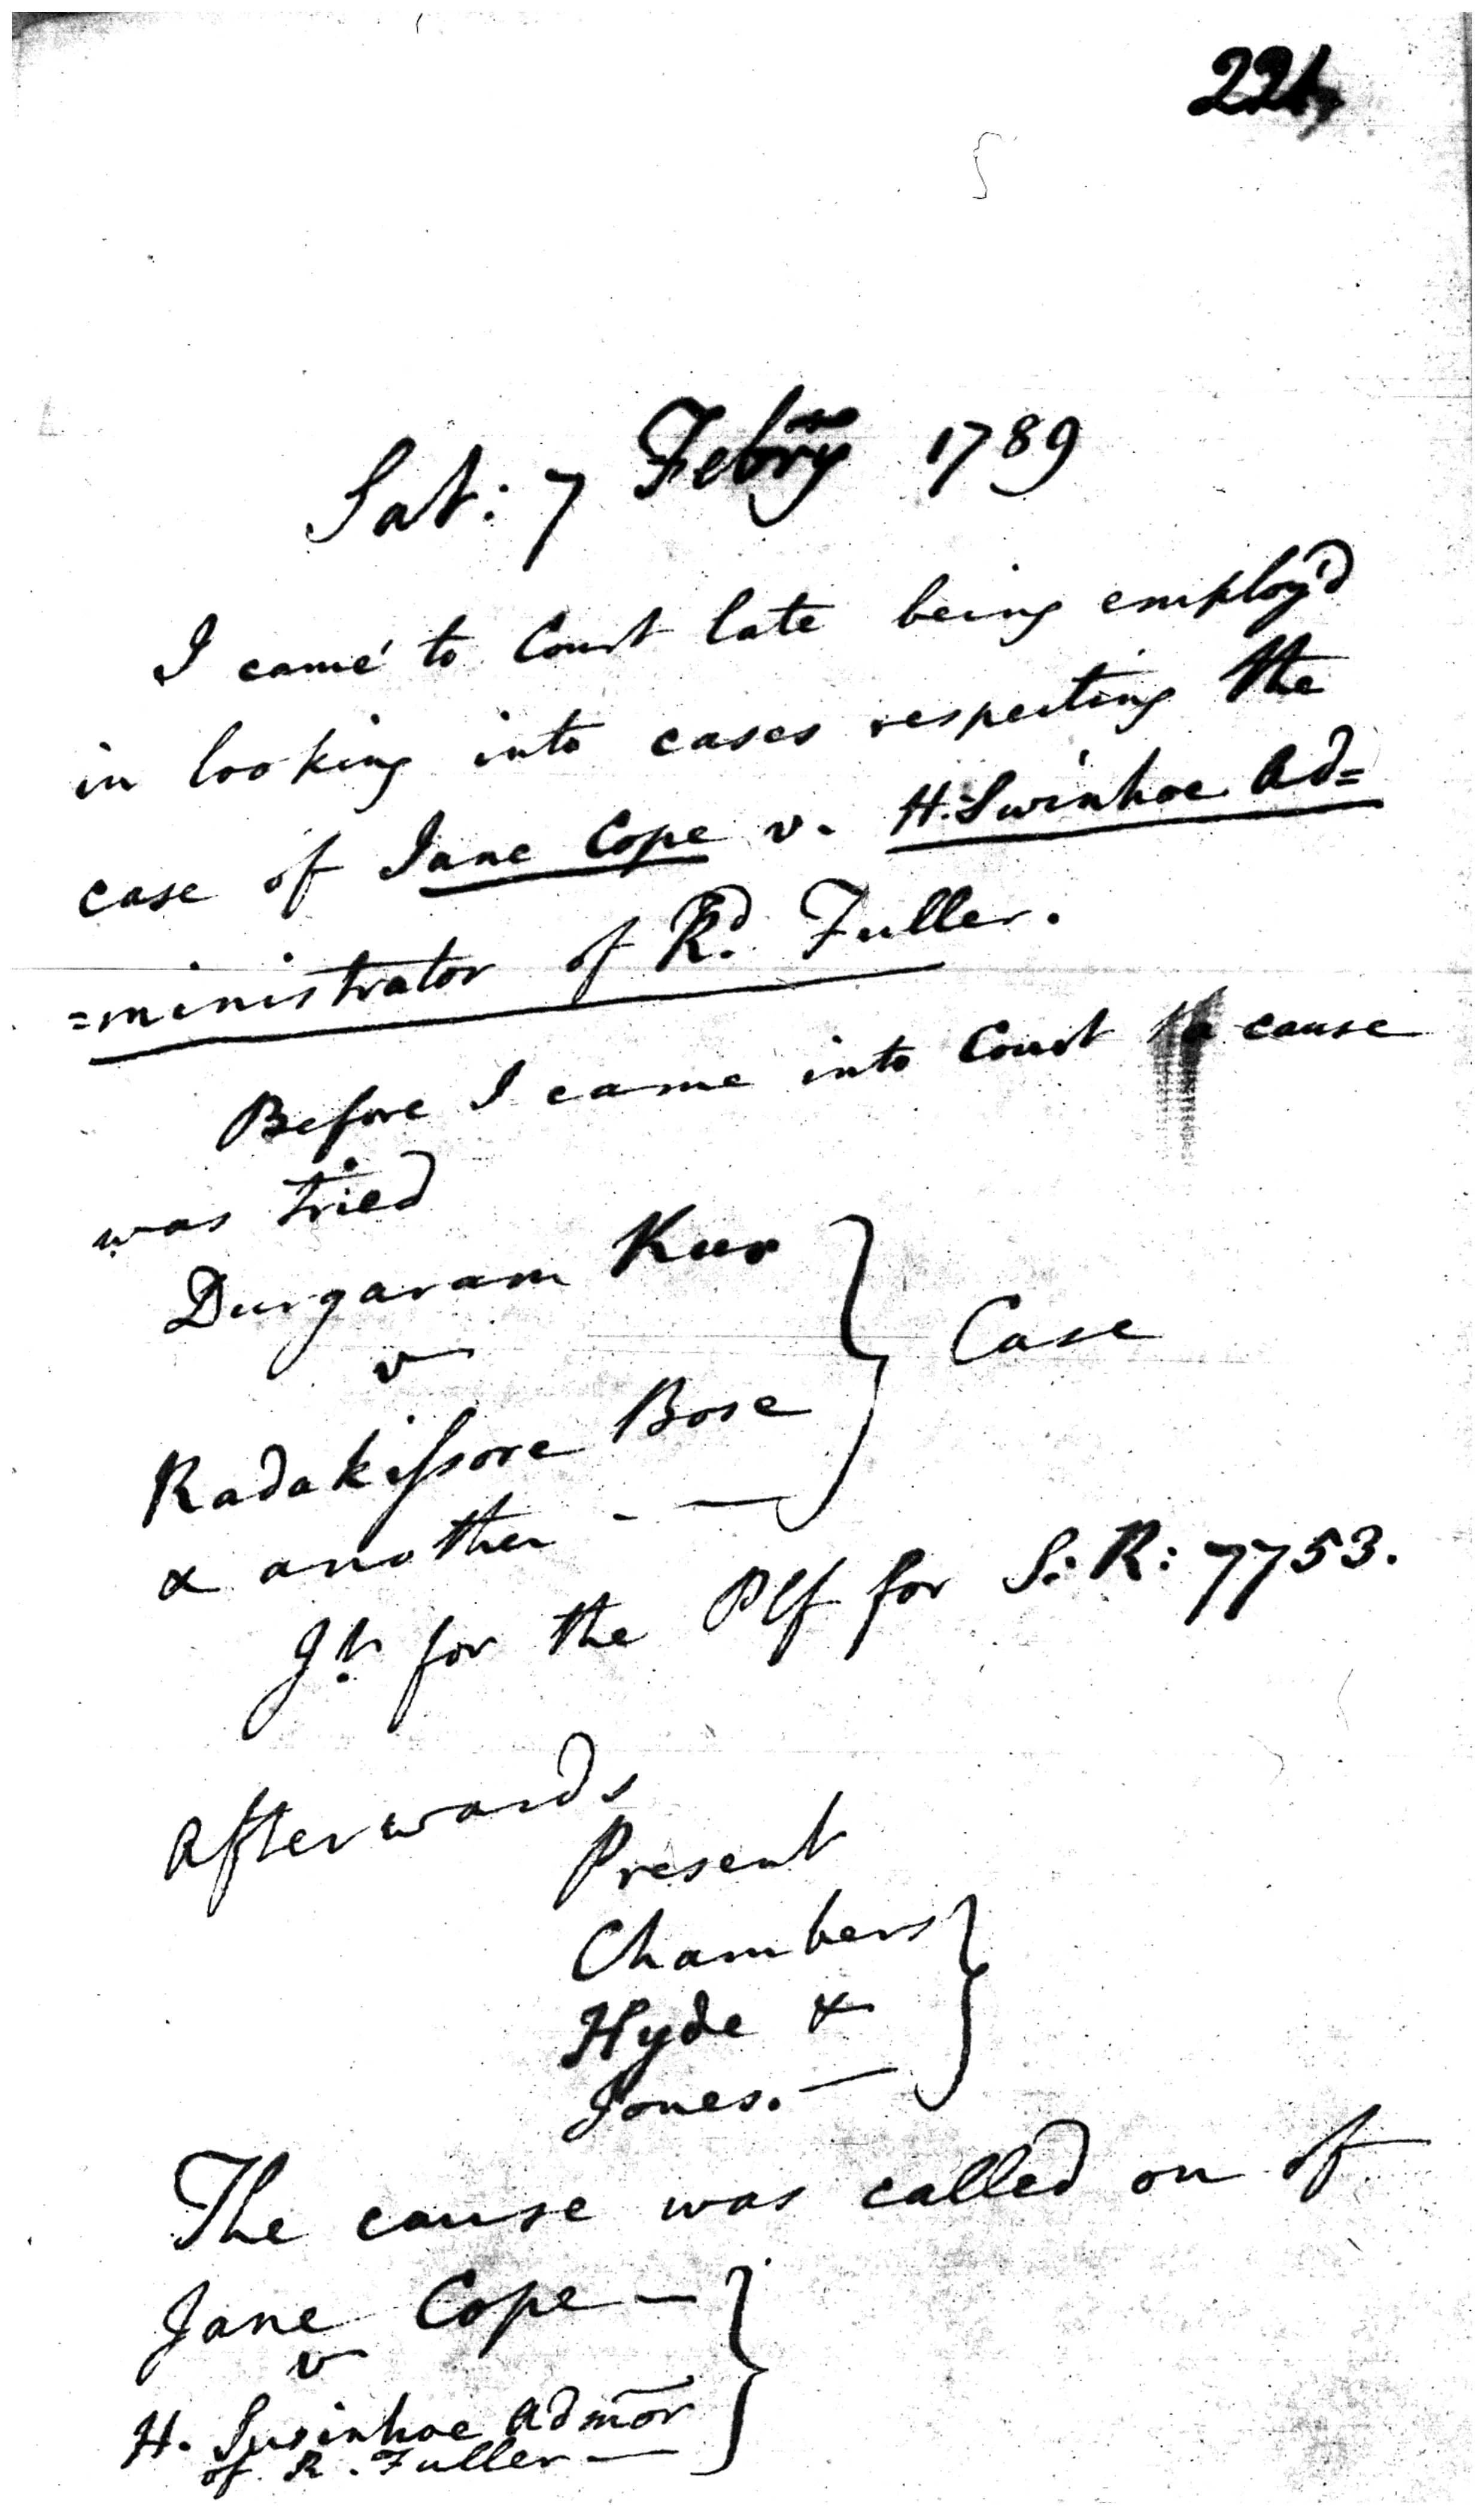 Sat: 7 Febry 1789
I came to Court late being employ'd
in looking into cases respecting the
case of Jane Cope v. H. Swinhoe Ad=
=ministrator of Rd. Fuller.
Before I came into Court cause
was tried
Durgaram Kur
v
Radakissore Bose
& another - —
} Case
Jt. for the Plf for S: R: 7753.
afterwards
Present
Chambers
Hyde &
Jones. —
The cause was called on of
Jane Cope —
v
H. Swinhoe Admor
of R. Fuller —